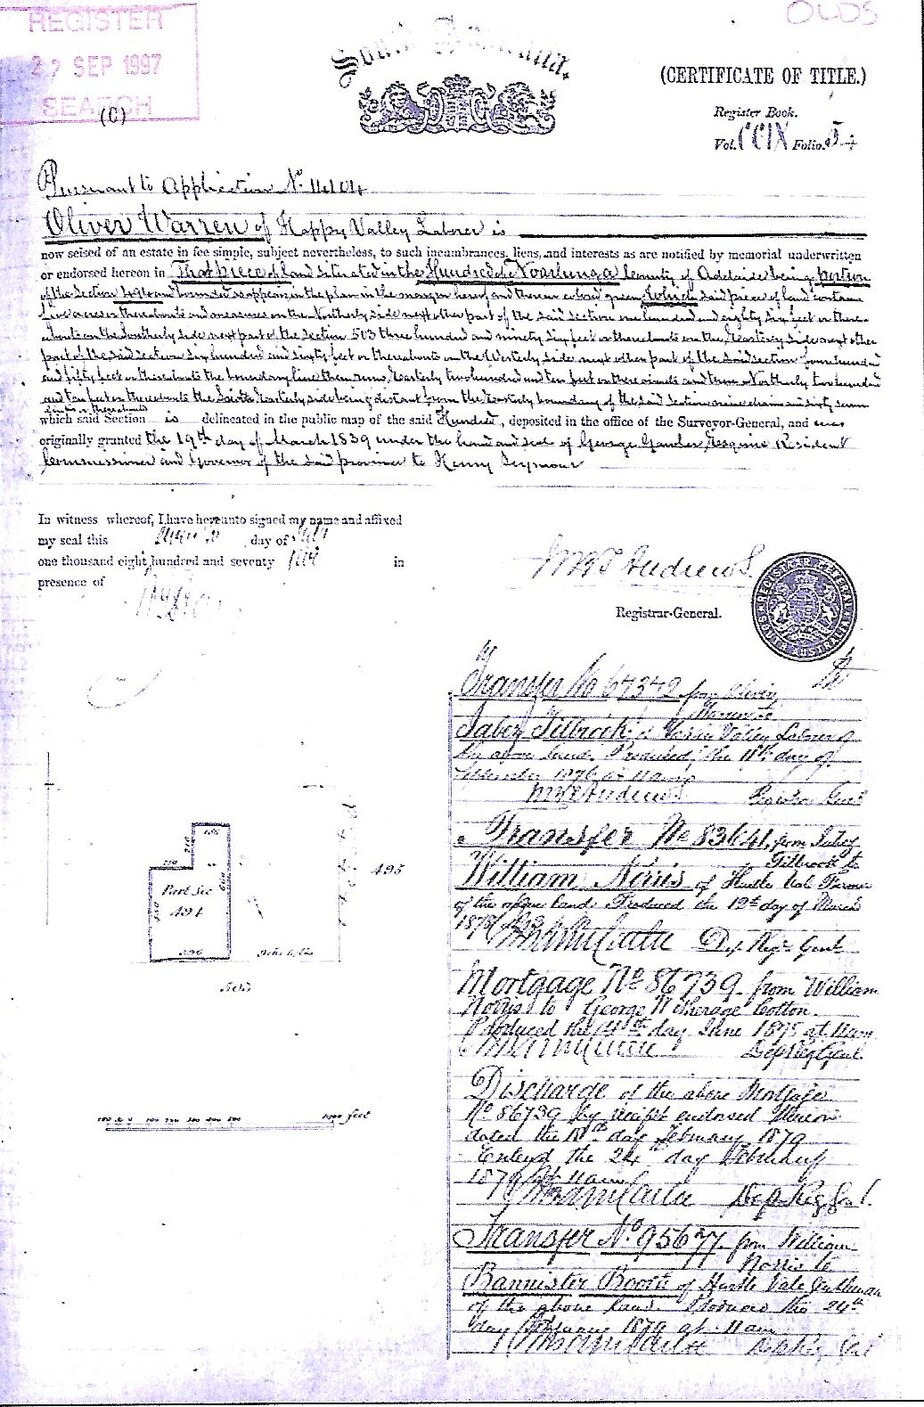 REGISTER
22 SEP 1997
SEARCH
OLDS
(C)
South Australia.
(CERTIFICATE OF TITLE.)
Register Book.
Vol. CCIX Folio. 54
Pursuant to Application No.
Oliver Warren of Happy Valley Laborer is
now seised of an estate in fee simple, subject nevertheless, to such incumbrances, liens, and interests as are notified by memorial underwritten
or endorsed hereon in That piece of land situated in the Hundred of Noarlunga County of Adelaide being portion
of the Section 494 and bounded as appears in the plan in the margin hereof and therein colored green Which said piece of land contains
five acres or thereabouts and measures on the Northerly side next other part of the said section one hundred and eighty six feet or there-
abouts on the Southerly side next part of the Section 503 three hundred and ninety six feet or thereabouts on the Easterly side next other
part of the said section six hundred and sixty feet or thereabouts on the Westerly side next other part of the said section four hundred
and fifty feet or thereabouts the boundary line then runs Easterly two hundred and ten feet or thereabouts and thence Northerly two hundred
and ten feet or thereabouts the South Easterly side being distant from the Easterly boundary of the said Section nine chains and sixty seven
links or thereabouts
which said Section is delineated in the public map of the said Hundred, deposited in the office of the Surveyor-General, and was
originally granted the 19th day of March 1839 under the hand and seal of George Gawler Esquire Resident
Commissioner and Governor of the said province to Henry Seymour
In witness whereof, I have hereunto signed my name and affixed
my seal this day of
one thousand eight hundred and seventy in
presence of
Andrews
Registrar-General.
REGISTRAR GENERAL SOUTH AUSTRALIA
Transfer No 67342 from Oliver
Warren to
Jabez Tilbrook of Valley Laborer of
the above land. Produced the 11th day of
1876 at 11 am
Andrews
Transfer No 83641, from Jabez
Tilbrook to
William Norris of Hurtle Vale Farmer
of the above land Produced the 12th day of March
1878
Dep Reg Genl
Mortgage No 86739 from William
Norris to George Cotton.
Produced the day June 1878 at 11am
Dep Reg Genl.
Discharge of the above Mortgage
No 86739 by receipt endorsed thereon
dated the 18th day February 1879
Entered the 24th day February
1879 at 11am
Dep Reg Genl.
Transfer No 95677 from William
Norris to
Bannister Booth of Hurtle Vale Gentleman
of the above land. Produced the 24th
day February 1879 at 11am
186
210
210
660
450
Part Sec
494
396
495
503
1000 feet